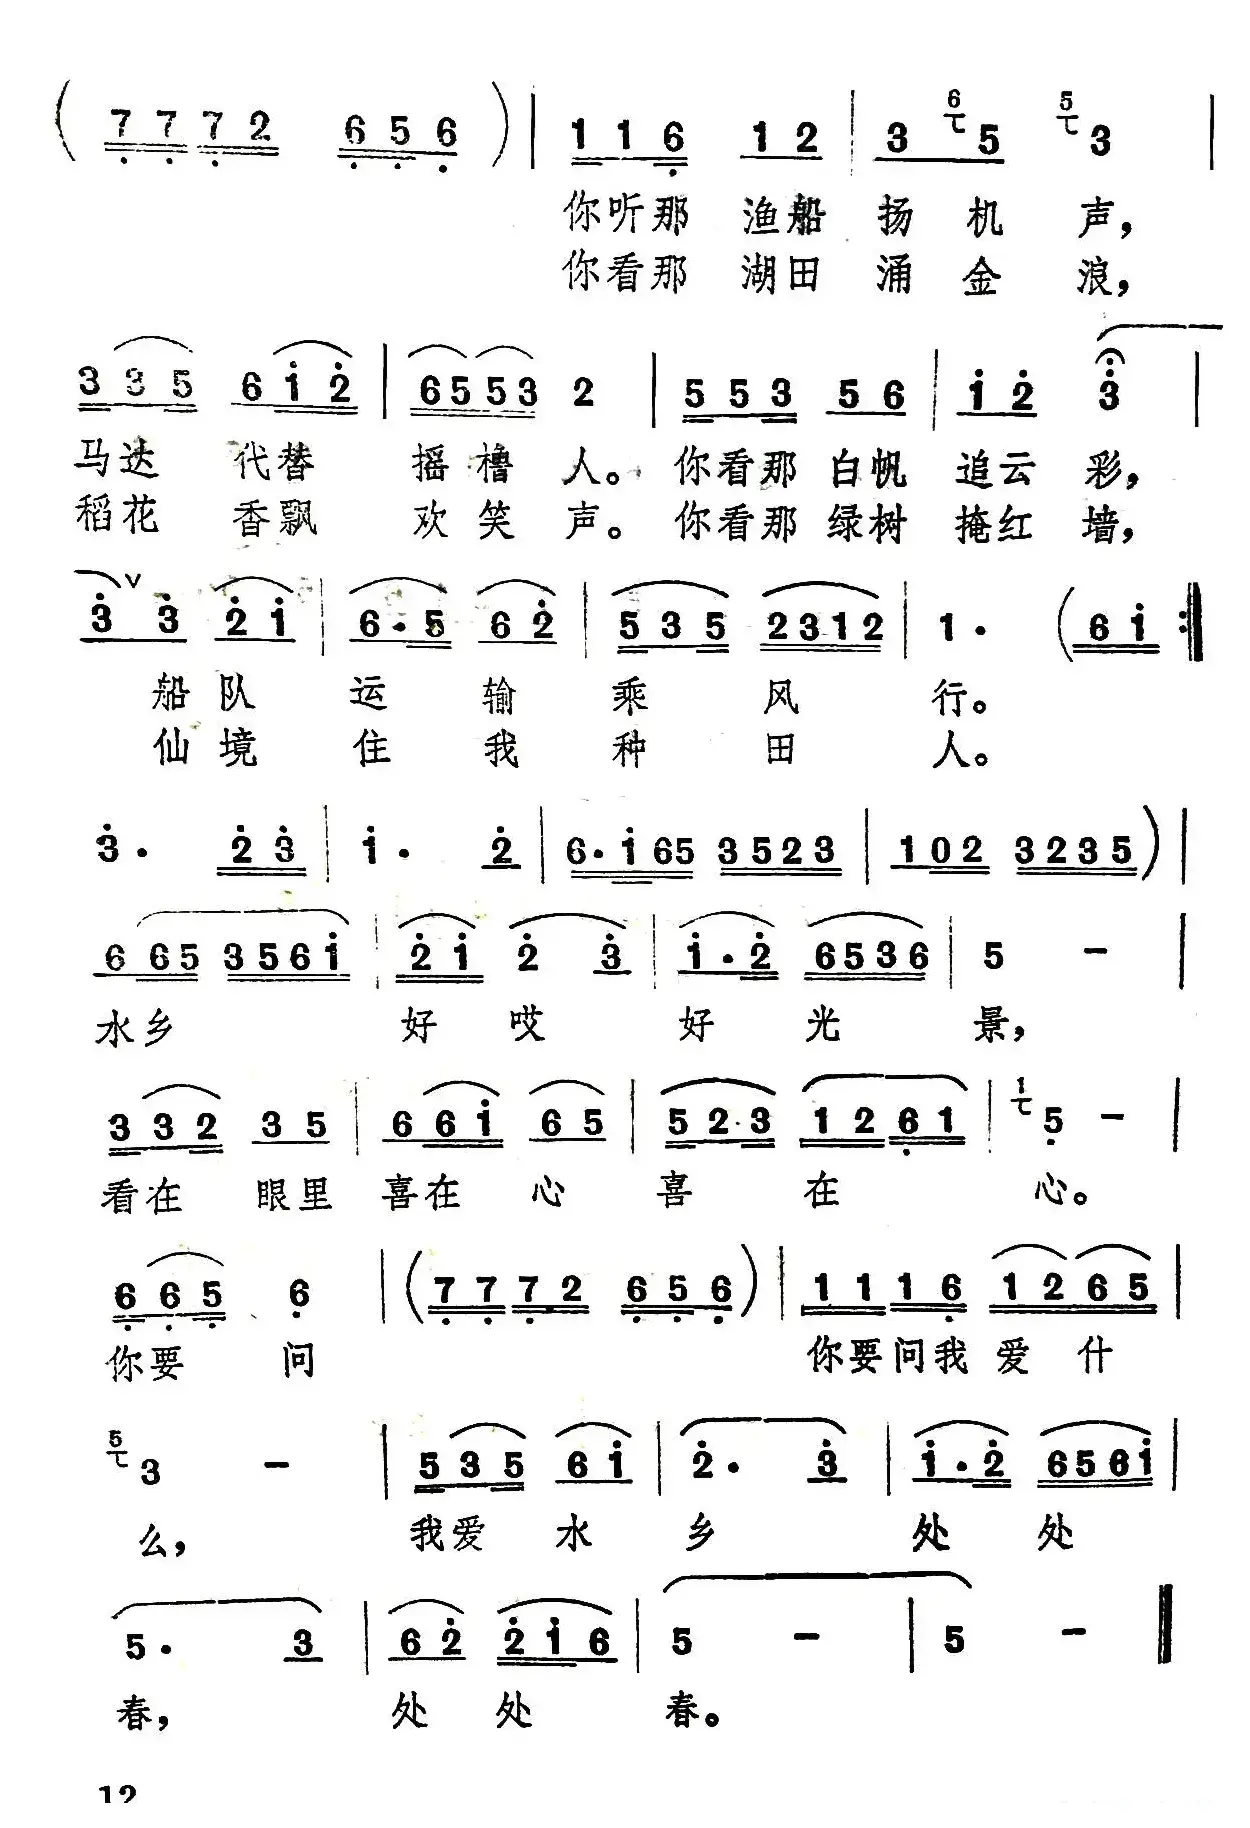 ( 7 7 7 2 6 5 6 ) | 1 1 6 1 2 | 3 6 5 5 3 |
你听那 渔船 扬 机 声，
你看那 湖田 涌 金 浪，
3 3 5 6 1 2 | 6 5 5 3 2 | 5 5 3 5 6 | 1 2 3 |
马达 代替 摇橹 人。你看那 白帆 追云 彩，
稻花 香飘 欢笑 声。你看那 绿树 掩红 墙，
3 3 2 1 | 6 · 5 6 2 | 5 3 5 2 3 1 2 | 1 · ( 6 1 :||
船队 运 输 乘 风 行。
仙境 住 我 种 田 人。
3 · 2 3 | 1 · 2 | 6 · 1 6 5 3 5 2 3 | 1 0 2 3 2 3 5 ) |
6 6 5 3 5 6 1 | 2 1 2 3 | 1 · 2 6 5 3 6 | 5 － |
水乡 好 哎 好 光 景，
3 3 2 3 5 | 6 6 1 6 5 | 5 2 · 3 1 2 6 1 | 1 5 － |
看在 眼里 喜在 心 喜 在 心。
6 6 5 6 | ( 7 7 7 2 6 5 6 ) | 1 1 1 6 1 2 6 5 |
你要 问 你要问我 爱 什
5 3 － | 5 3 5 6 1 | 2 · 3 | 1 · 2 6 5 6 1 |
么， 我爱 水 乡 处 处
5 · 3 | 6 2 2 1 6 | 5 － | 5 － ||
春， 处 处 春。
12